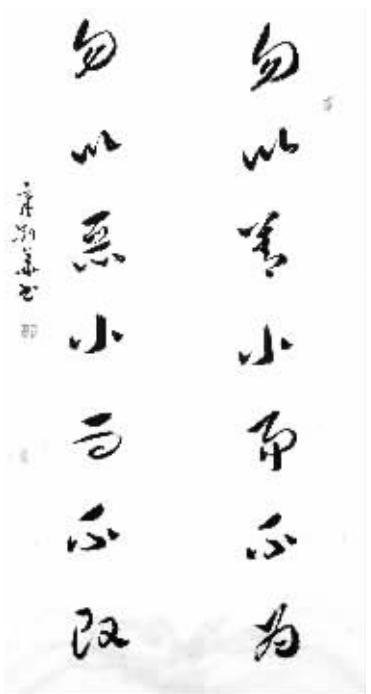 勿以善小而不为
勿以恶小而不改